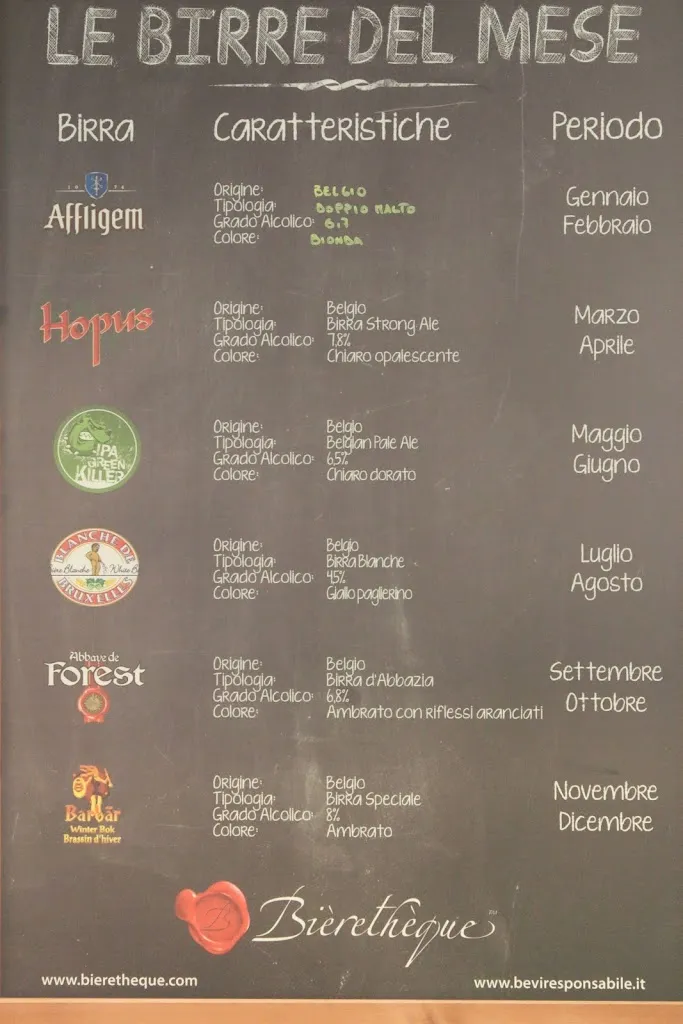 LE BIRRE DEL MESE
Birra Caratteristiche Periodo
1074
Affligem
Origine: BELGIO
Tipologia: DOPPIO MALTO
Grado Alcolico: 6,7
Colore: BIONDA
Gennaio
Febbraio
Hopus
Origine: Belgio
Tipologia: Birra Strong Ale
Grado Alcolico: 7,8%
Colore: Chiaro opalescente
Marzo
Aprile
IPA
GREEN
KILLER
Origine: Belgio
Tipologia: Belgian Pale Ale
Grado Alcolico: 6,5%
Colore: Chiaro dorato
Maggio
Giugno
BLANCHE DE
Blanche White
BRUXELLES
Origine: Belgio
Tipologia: Birra Blanche
Grado Alcolico: 4,5%
Colore: Giallo paglierino
Luglio
Agosto
Abbaye de
Forest
Origine: Belgio
Tipologia: Birra d'Abbazia
Grado Alcolico: 6,8%
Colore: Ambrato con riflessi aranciati
Settembre
Ottobre
Barbãr
Winter Bok
Brassin d'hiver
Origine: Belgio
Tipologia: Birra Speciale
Grado Alcolico: 8%
Colore: Ambrato
Novembre
Dicembre
B Bièrethèque™
www.bieretheque.com www.beviresponsabile.it